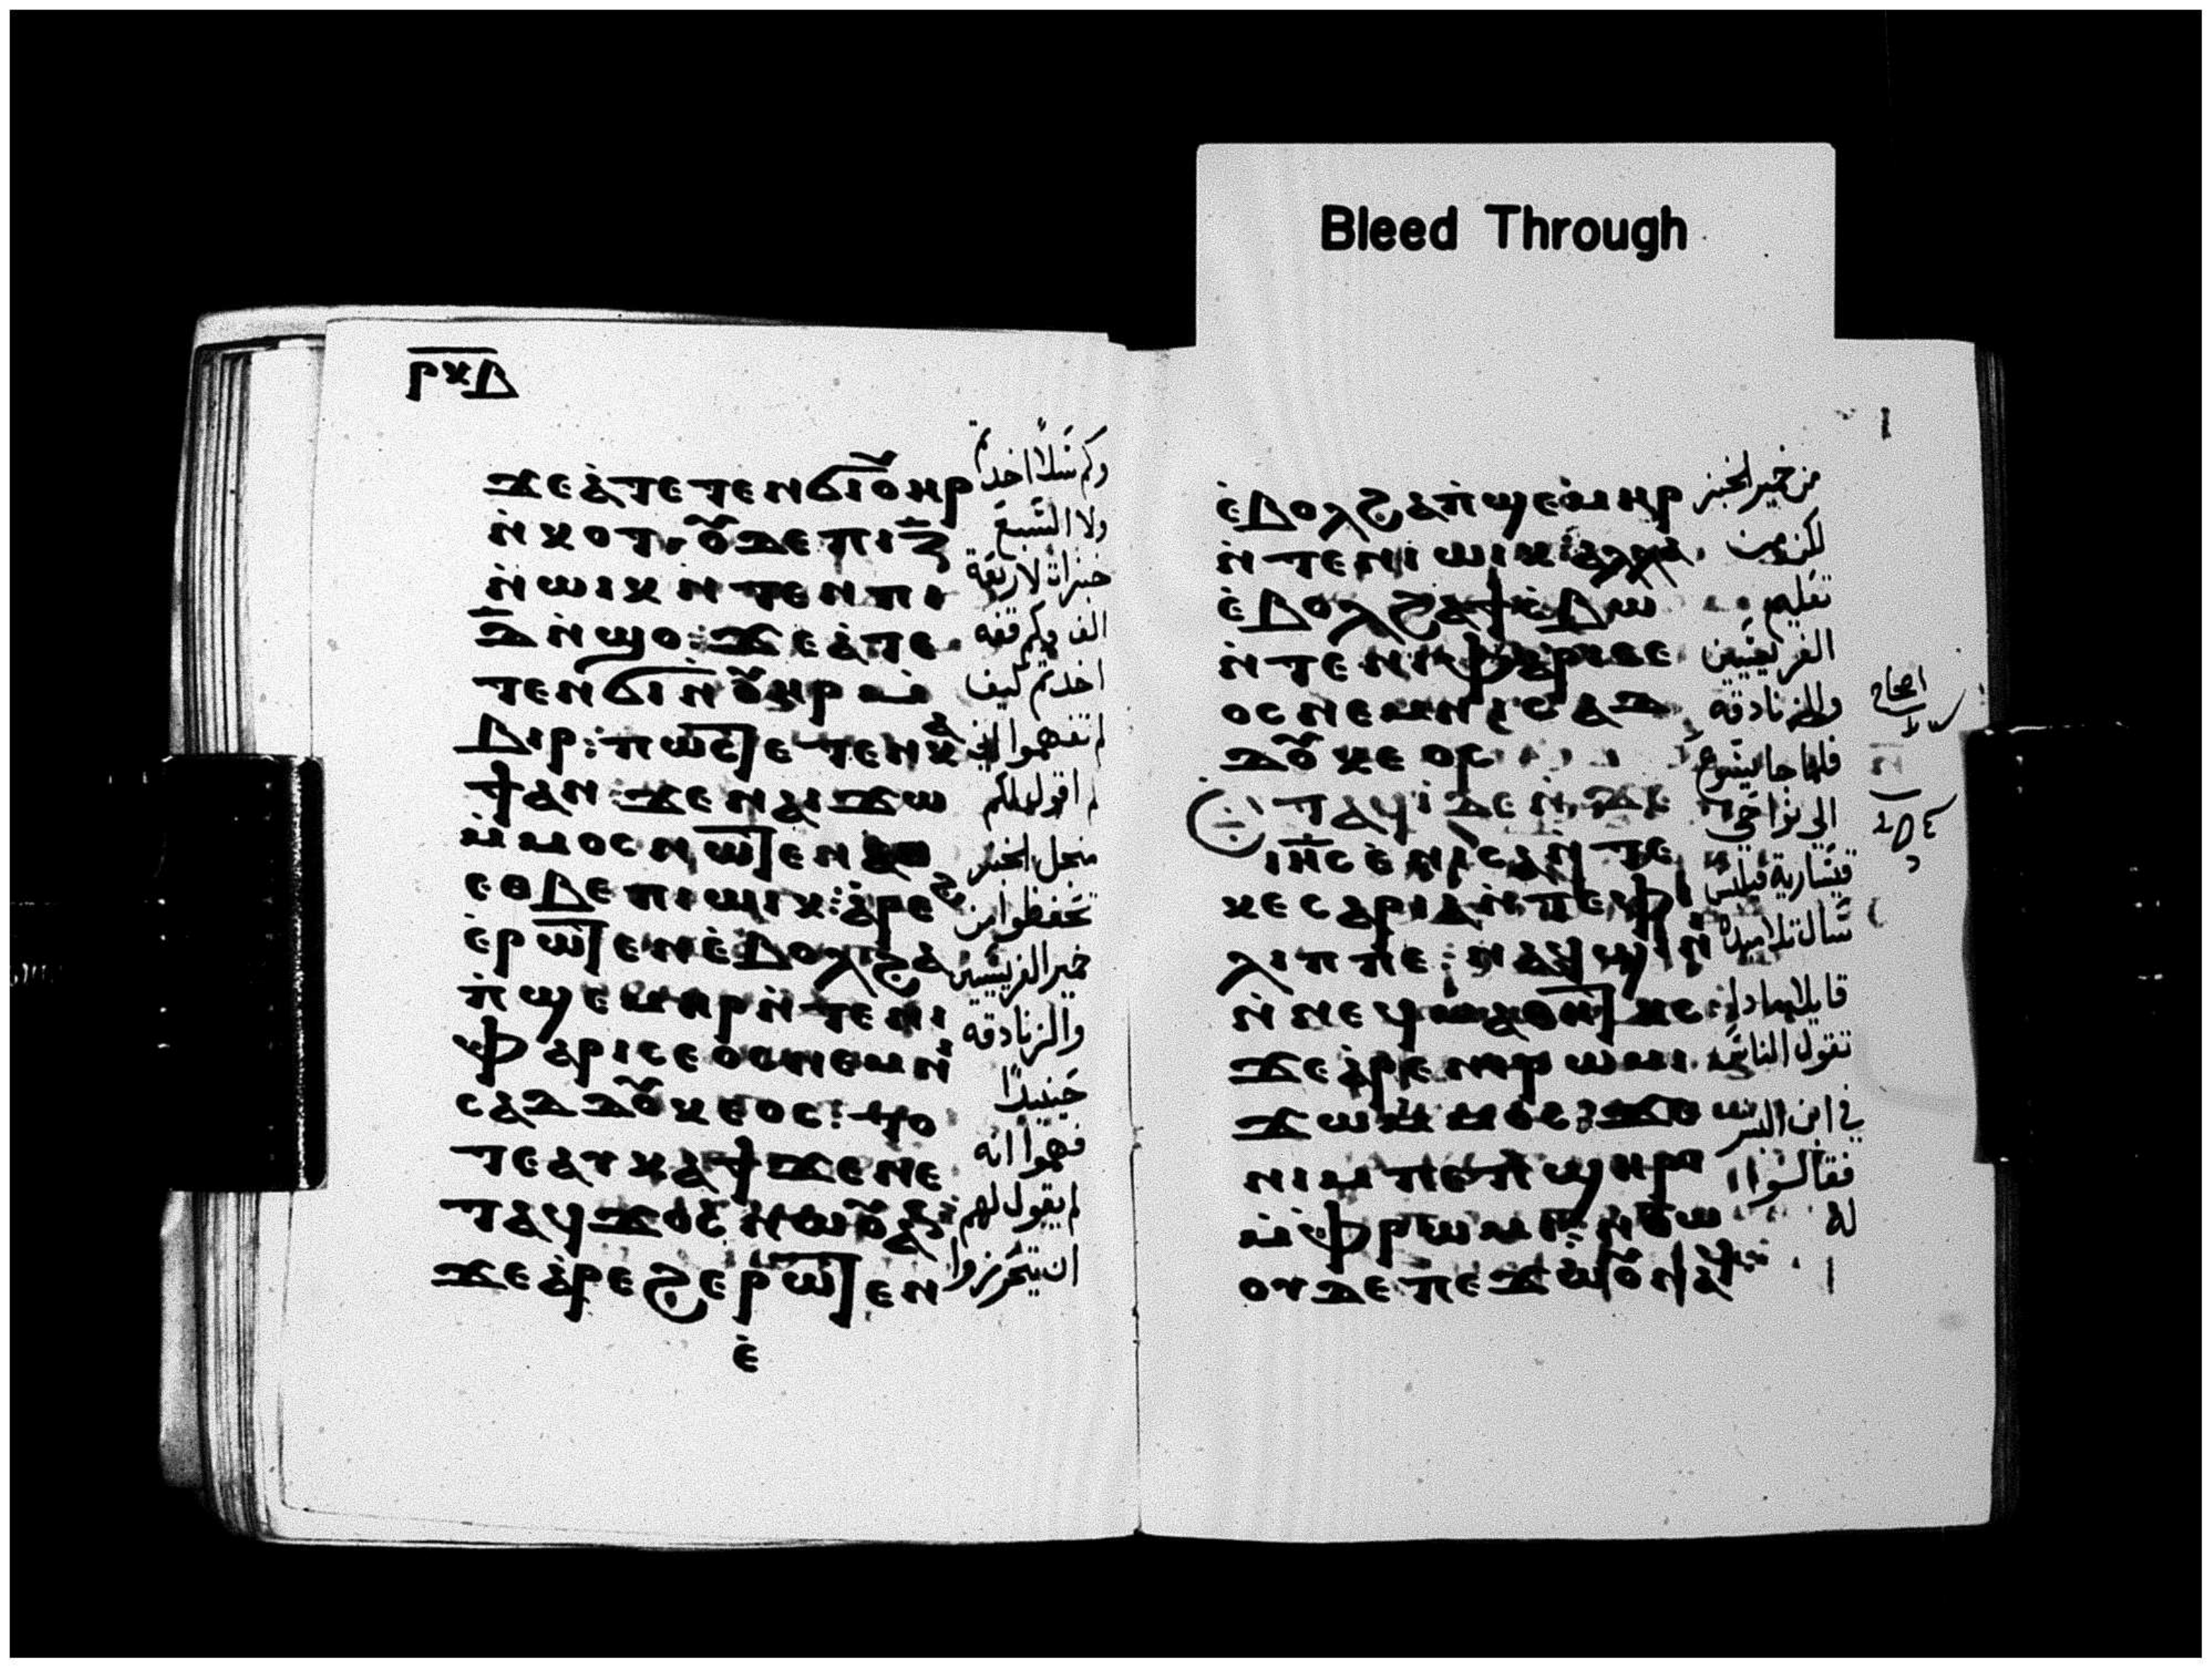 Bleed Through
ⲣⲕⲇ
ϫⲉ ⲁ̀ⲧⲉⲧⲉⲛϭⲓ ⲟⲩⲏⲣ
ⲛ̀ⲕⲟⲧ ⲟⲩⲇⲉ ⲡⲓⲍ̅
ⲛ̀ⲱⲓⲕ ⲛ̀ⲧⲉⲛⲡⲓ
ⲇ̅ ⲛ̀ϣⲟ: ϫⲉ ⲁ̀ⲧⲉ
ⲧⲉⲛϭⲓ ⲛ̀ⲟⲩⲏⲣ ⲙ̀
ⲃⲓⲣ: ⲡⲱⲥ ⲧⲉⲧⲉⲛⲕⲁ
ϯ ⲁⲛ: ϫⲉ ⲛⲁⲓϫⲱ
ⲙ̀ⲙⲟⲥ ⲛⲱⲧⲉⲛ ⲁⲛ
ⲉⲑⲃⲉ ⲡⲓⲱⲓⲕ: ⲁ̀ⲣⲉϩ
ⲉ̀ⲣⲱⲧⲉⲛ ⲉ̀ⲃⲟⲗϩⲁ
ⲡ̀ϣⲉⲙⲏⲣ ⲛ̀ⲧⲉⲛⲓ
ⲫⲁⲣⲓⲥⲉⲟⲥ ⲛⲉⲙ ⲛⲓ
ⲥⲁⲇⲇⲟⲩⲕⲉⲟⲥ: ⲧⲟ
ⲧⲉ ⲁⲩⲕⲁϯ ϫⲉ ⲛⲉ
ⲧⲁϥϫⲟⲥ ⲛⲱⲟⲩ ⲁⲛ:
ϫⲉ ⲁ̀ⲣⲉϩ ⲉⲣⲱⲧⲉⲛ
ⲉ̀
وكم سلا اخدتم
ولا السبع
خبزات لاربعة
الف وكم قفه
اخدتم كيف
لم تفهموا اني
لم اقول لكم
من اجل الخبز
تحفظوا من
خمير الفريسيين
والزنادقه
حينيدا
فهموا انه
لم يقول لهم
ان يتحرزوا
ⲉ̀ⲃⲟⲗϩⲁ ⲡ̀ϣⲉⲙⲏⲣ
ⲛ̀ⲧⲉ ⲛⲓⲱⲓⲕ: ⲁⲗⲗⲁ
ⲉ̀ⲃⲟⲗϩⲁ ϯⲥ̀ⲃⲱ
ⲛ̀ⲧⲉ ⲛⲓⲫⲁⲣⲓⲥⲉ
ⲟⲥ ⲛⲉⲙ ⲛⲓⲥⲁⲇ
ⲇⲟⲩⲕⲉⲟⲥ
ⲉⲧⲁϥⲓ̀ ⲇⲉ ⲛ̀ϫⲉ
ⲓⲏ̅ⲥ ⲉ̀ⲛⲓⲥⲁ ⲛ̀ⲧⲉ
ⲕⲉⲥⲁⲣⲓⲁ ⲛ̀ⲧⲉ ⲫⲓ
ⲗⲓⲡⲡⲉ: ⲛⲁϥϣⲓⲛⲓ
ⲛ̀ⲛⲉϥⲙⲁⲑⲏⲧⲏⲥ:
ϫⲉ ⲁ̀ⲣⲉ ⲛⲓⲣⲱⲙⲓ
ϫⲱ ⲙ̀ⲙⲟⲥ: ϫⲉ
ⲛⲓⲙ ⲡⲉ ⲡ̀ϣⲏⲣⲓ
ⲙ̀ⲫⲣⲱⲙⲓ: ⲛ̀ⲑⲱ
ⲟⲩ ⲇⲉ ⲡⲉϫⲱⲟⲩ ⲛⲁϥ
من خمير الخبز
لكن من
تعليم
الفريسيين
والزنادقه
فلما جا يسوع
الي نواحي
قيسارية فيلبس
سال تلاميده
قايلا مادا
تقول الناس
في ابن البشر
فقالوا
له
اصحاح